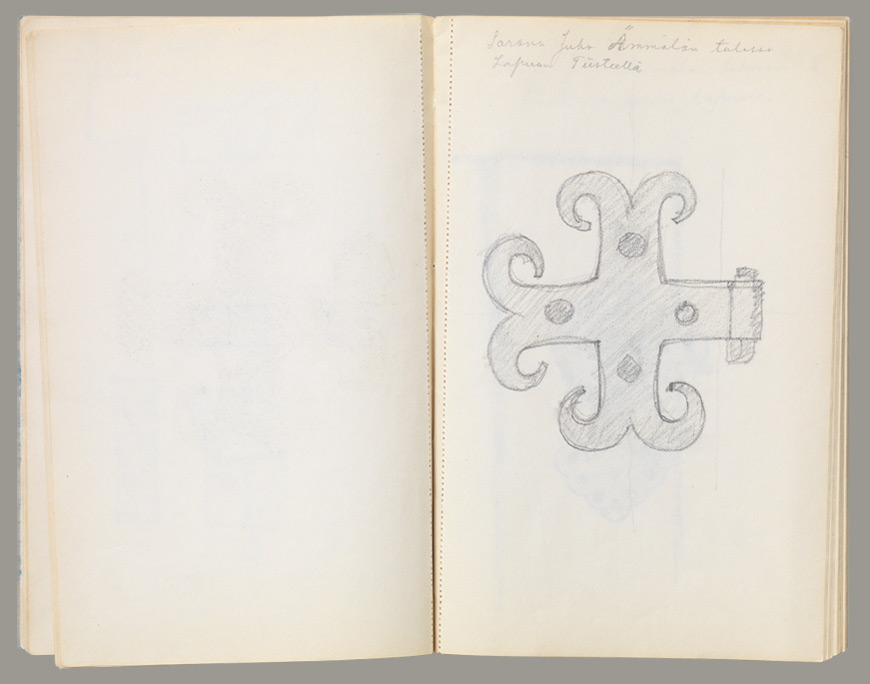 Sarana Juho Ämmälän talossa
Lapuan Tiistellä